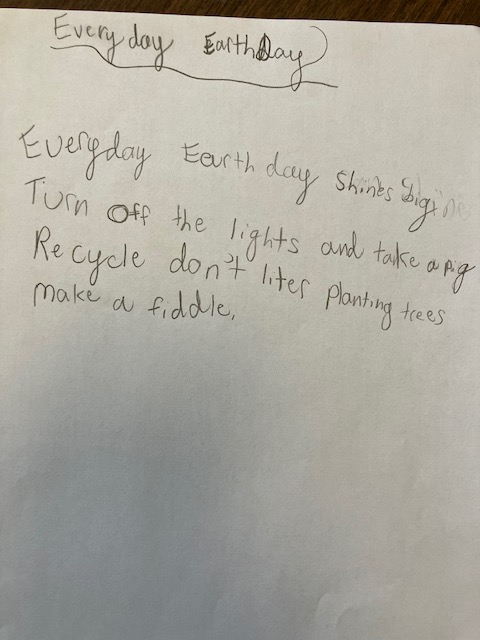 Every day Earth Day
Everyday Eearth day Shines big
Turn off the lights and take a pig
Recycle don't liter planting trees
make a fiddle.